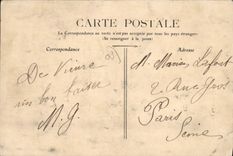 CARTE POSTALE
La Correspondance au recto n'est pas acceptée par tous les pays étrangers
(Se renseigner à la poste)
Correspondance
Adresse
De Vienne
un bon baiser
M. J.
M. Marius
2 Rue
Paris
Seine